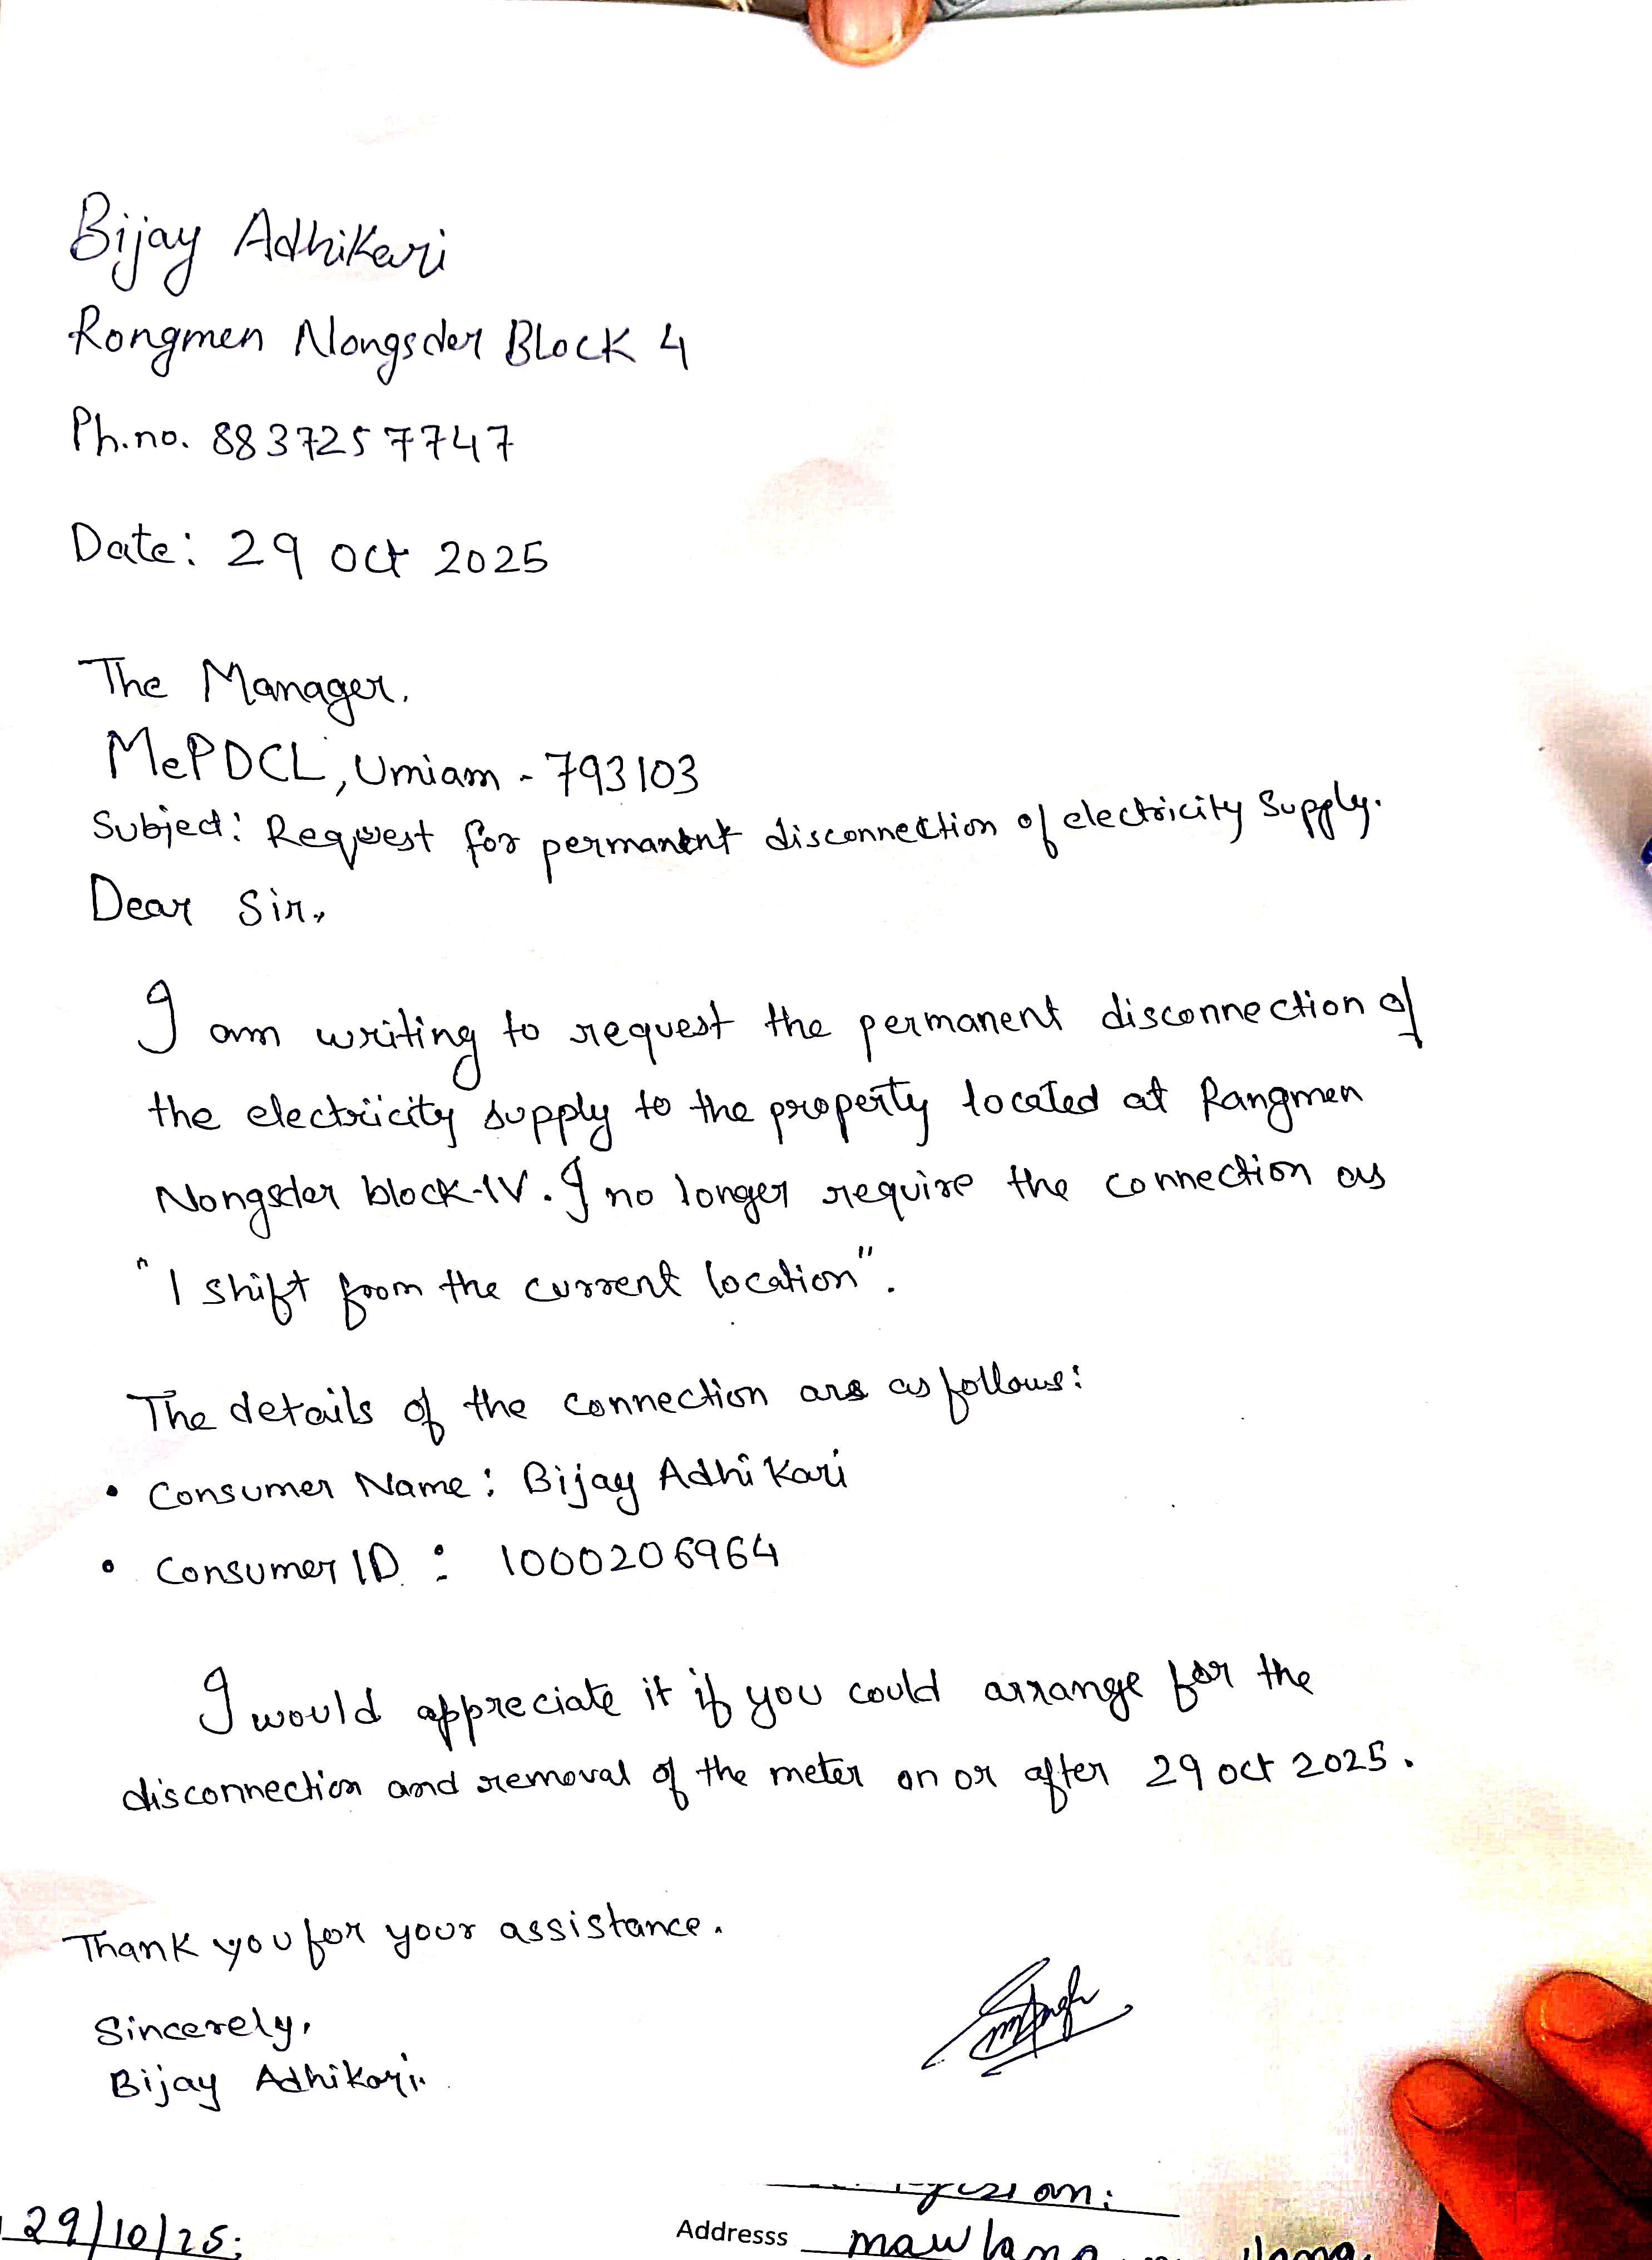 Bijay Adhikari
Rongmen Nongsder Block 4
Ph.no. 8837257747
Date: 29 Oct 2025
The Manager.
MePDCL, Umiam - 793103
Subject: Request for permanent disconnection of electricity Supply.
Dear Sir,
I am writing to request the permanent disconnection of
the electricity supply to the property located at Rangmen
Nongsder block-IV. I no longer require the connection as
"I shift from the current location".
The details of the connection are as follows:
• Consumer Name: Bijay Adhikari
• Consumer ID : 1000206964
I would appreciate it if you could arrange for the
disconnection and removal of the meter on or after 29 oct 2025.
Thank you for your assistance.
Sincerely,
Bijay Adhikari.
29/10/25:
Addresss